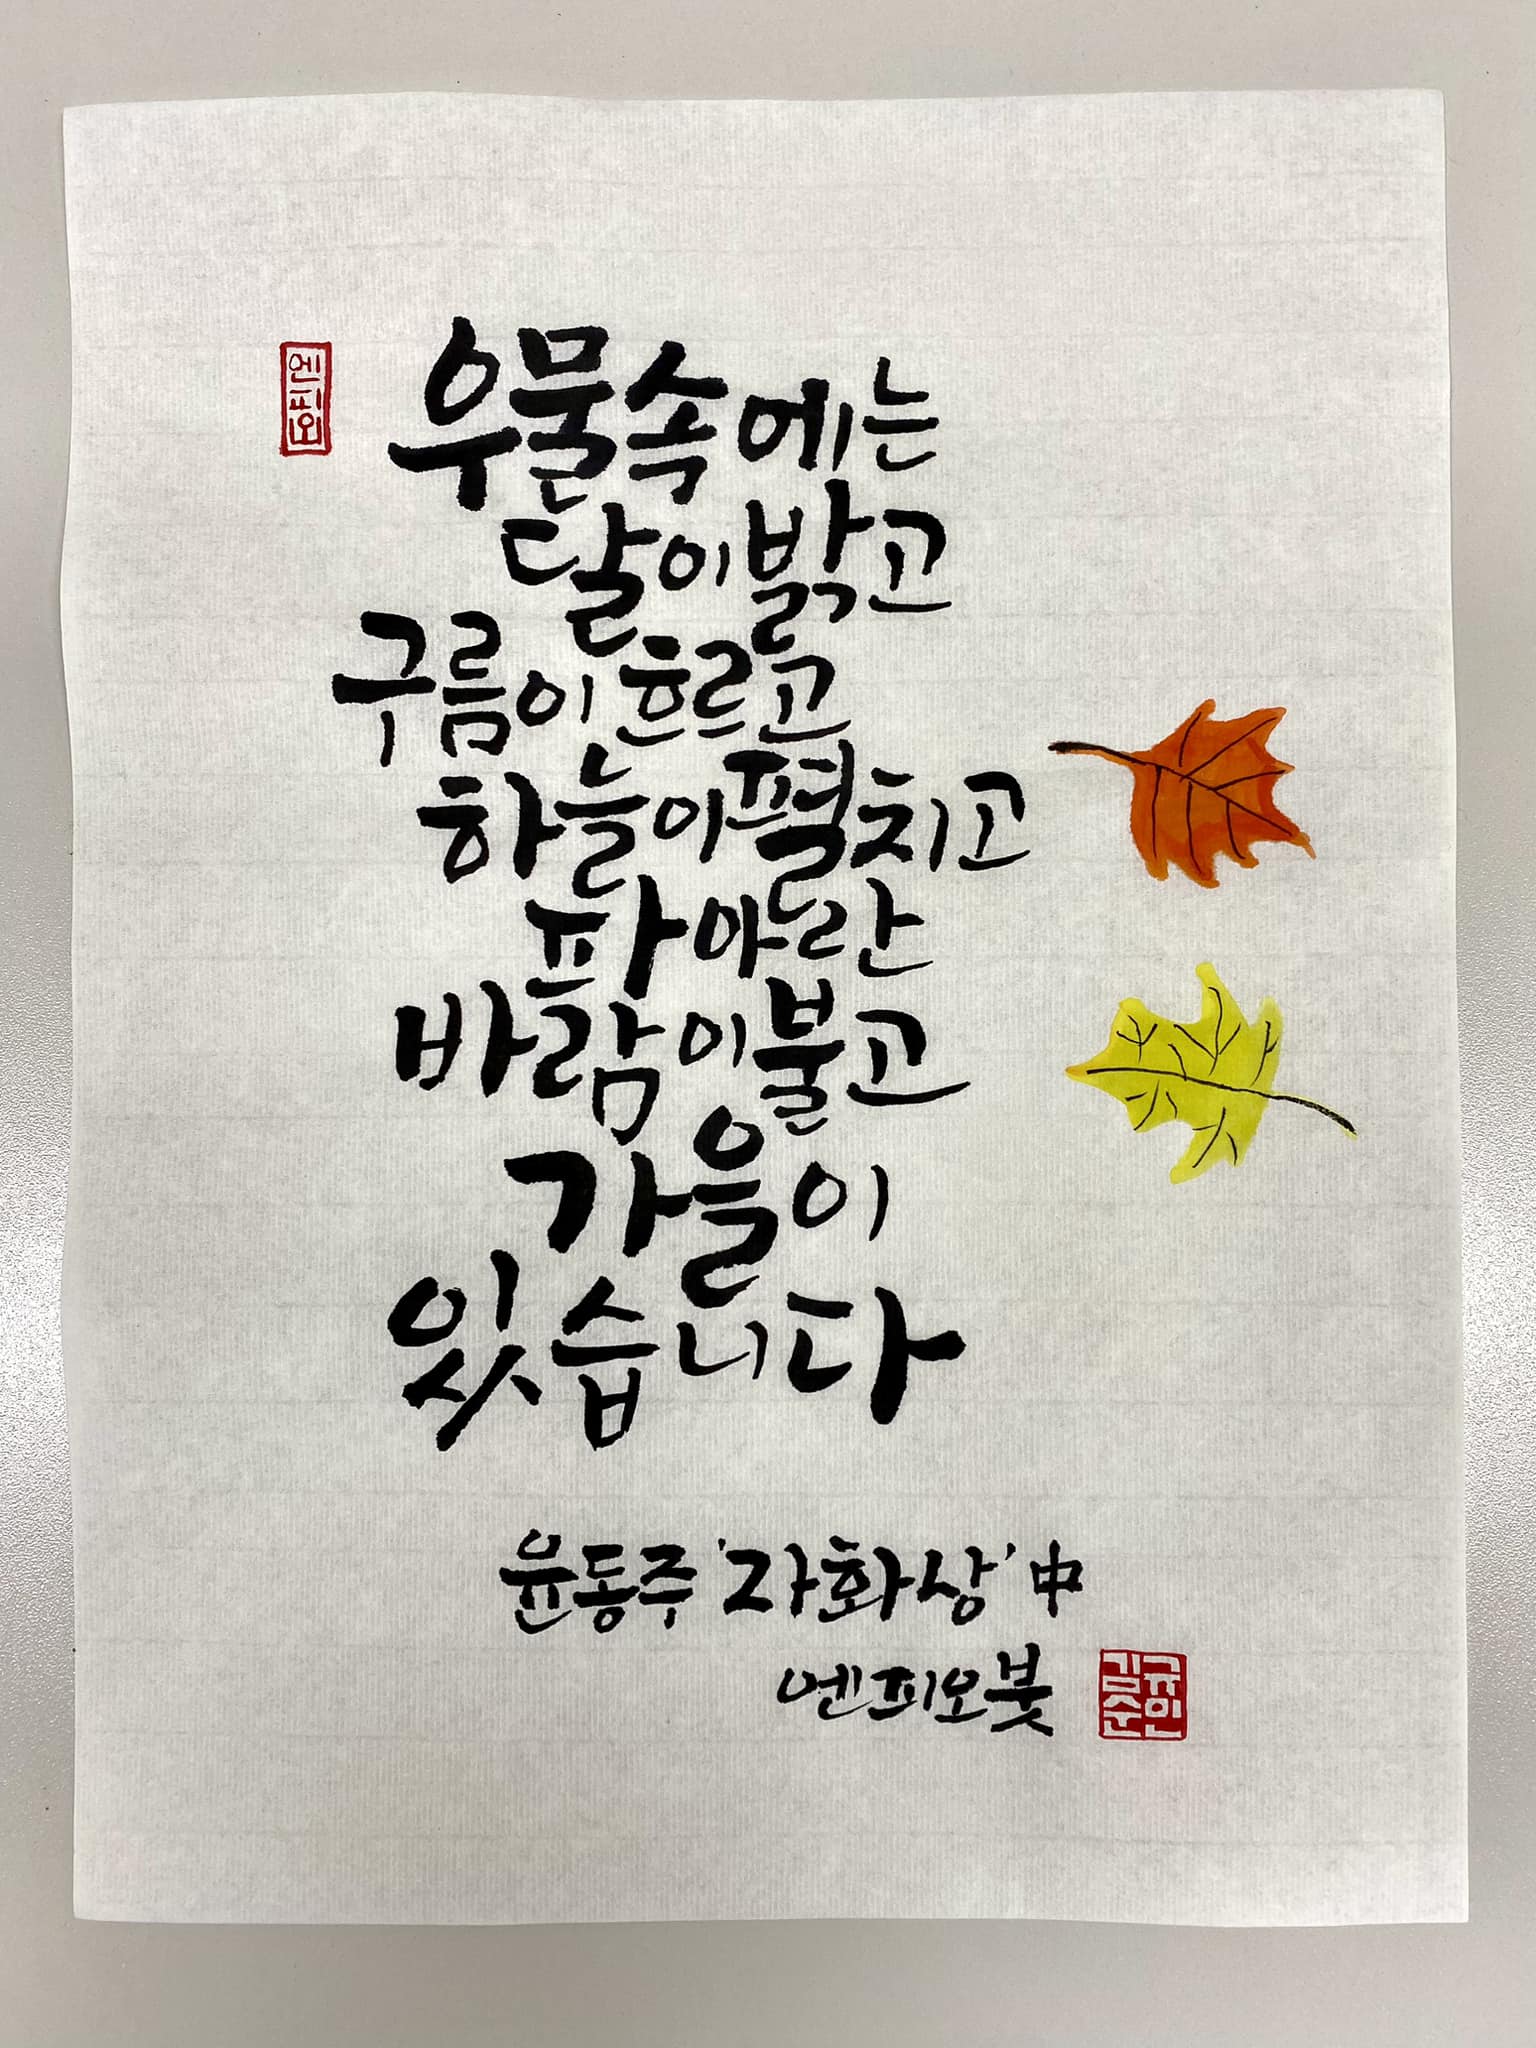 엔피오
우물속에는
달이밝고
구름이흐르고
하늘이펼치고
파아란
바람이불고
가을이
있습니다
윤동주 '자화상' 中
엔피오붓